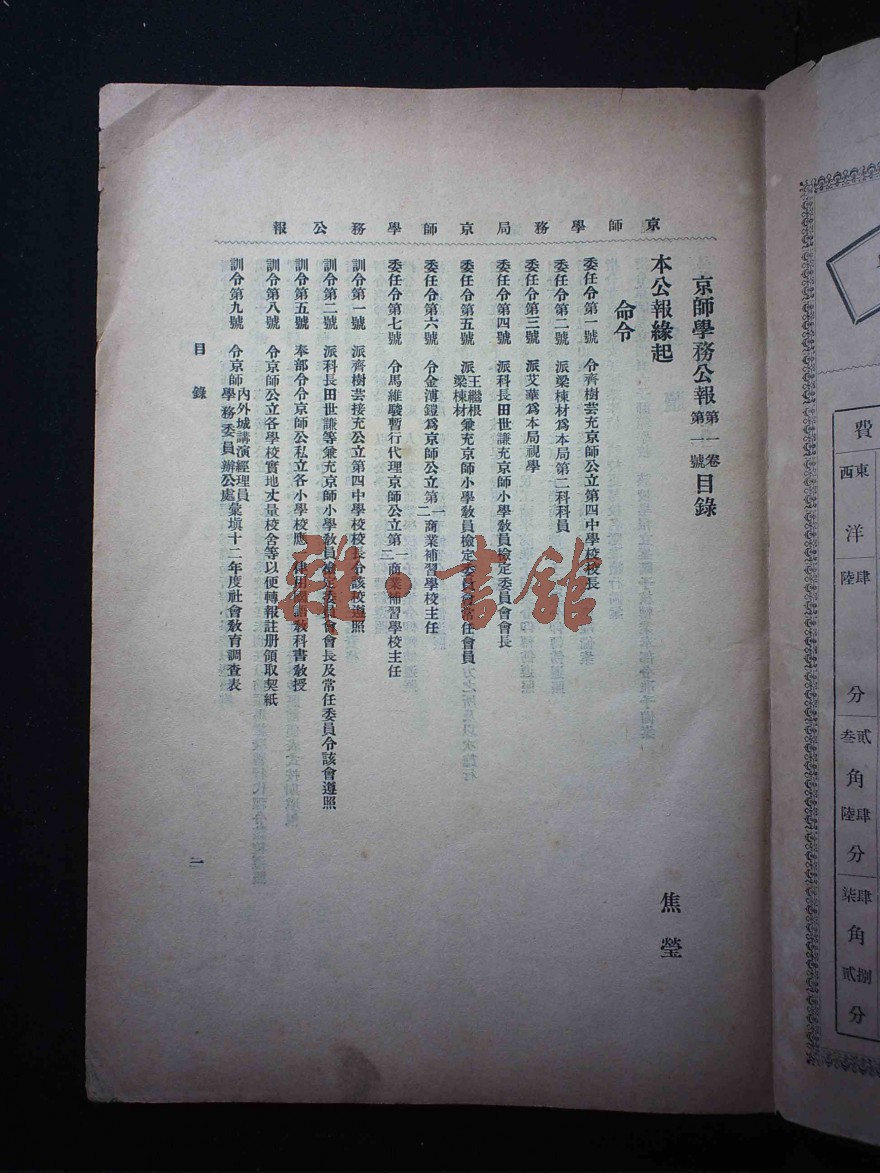 京師學務局京師學務公報
京師學務公報第一卷第一號目錄
本公報緣起 焦瑩
命令
委任令第一號 令齊樹芸充京師公立第四中學校校長
委任令第二號 派梁棟材爲本局第二科科員
委任令第三號 派艾華爲本局視學
委任令第四號 派科長田世謙充京師小學敎員檢定委員會會長
委任令第五號 派王繼根梁棟材兼充京師小學敎員檢定委員會常任會員
委任令第六號 令金溥鎧爲京師公立第一二商業補習學校主任
委任令第七號 令馬維駿暫行代理京師公立第一二商業補習學校主任
訓令第一號 派齊樹芸接充公立第四中學校校長令該校遵照
訓令第二號 派科長田世謙等兼充京師小學敎員檢定委員會會長及常任委員令該會遵照
訓令第五號 奉部令令京師公私立各小學校應一律用國語敎科書敎授
訓令第八號 令京師公立各學校實地丈量校舍等以便轉報註册領取契紙
訓令第九號 令京師內外城講演經理員學務委員辦公處彙填十二年度社會敎育調查表
目錄
一
雜·書館
費
東西洋
肆陸分
貳叁角肆陸分
肆柒角捌貳分